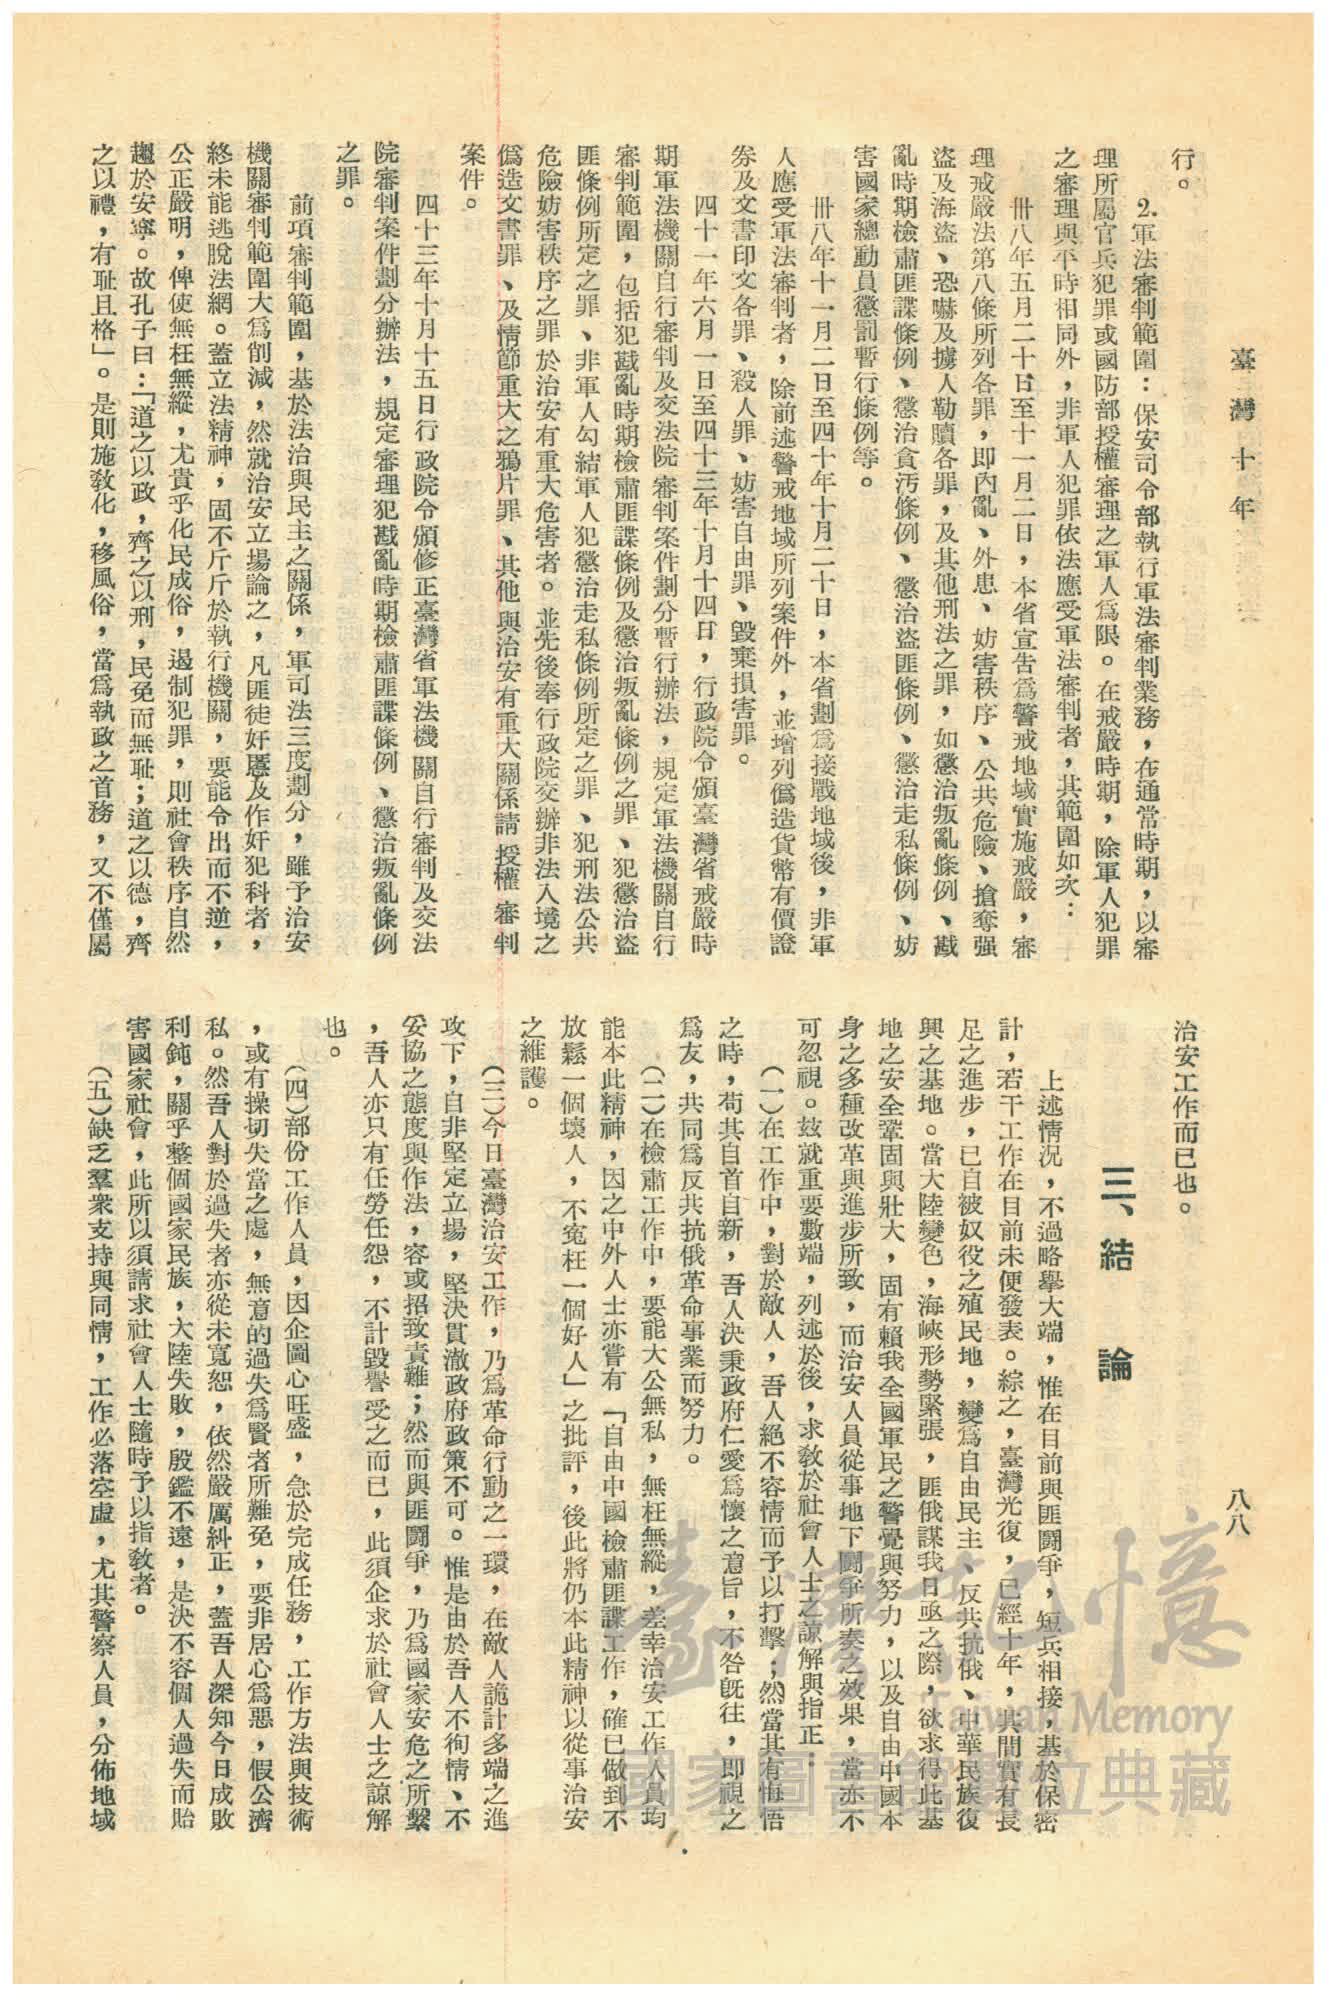 臺灣十年
八八
行。
2.軍法審判範圍：保安司令部執行軍法審判業務，在通常時期，以審
理所屬官兵犯罪或國防部授權審理之軍人爲限。在戒嚴時期，除軍人犯罪
之審理與平時相同外，非軍人犯罪依法應受軍法審判者，其範圍如次：
卅八年五月二十日至十一月二日，本省宣告爲警戒地域實施戒嚴，審
理戒嚴法第八條所列各罪，即內亂、外患、妨害秩序、公共危險、搶奪强
盜及海盜、恐嚇及擄人勒贖各罪，及其他刑法之罪，如懲治叛亂條例、戡
亂時期檢肅匪諜條例、懲治貪汚條例、懲治盜匪條例、懲治走私條例、妨
害國家總動員懲罰暫行條例等。
卅八年十一月二日至四十年十月二十日，本省劃爲接戰地域後，非軍
人應受軍法審判者，除前述警戒地域所列案件外，並增列僞造貨幣有價證
券及文書印文各罪、殺人罪、妨害自由罪、毀棄損害罪。
四十一年六月一日至四十三年十月十四日，行政院令頒臺灣省戒嚴時
期軍法機關自行審判及交法院審判案件劃分暫行辦法，規定軍法機關自行
審判範圍，包括犯戡亂時期檢肅匪諜條例及懲治叛亂條例之罪、犯懲治盜
匪條例所定之罪、非軍人勾結軍人犯懲治走私條例所定之罪、犯刑法公共
危險妨害秩序之罪於治安有重大危害者。並先後奉行政院交辦非法入境之
僞造文書罪、及情節重大之鴉片罪、其他與治安有重大關係請授權審判
案件。
四十三年十月十五日行政院令頒修正臺灣省軍法機關自行審判及交法
院審判案件劃分辦法，規定審理犯戡亂時期檢肅匪諜條例、懲治叛亂條例
之罪。
前項審判範圍，基於法治與民主之關係，軍司法三度劃分，雖予治安
機關審判範圍大爲削減，然就治安立場論之，凡匪徒奸慝及作奸犯科者，
終未能逃脫法網。蓋立法精神，固不斤斤於執行機關，要能令出而不逆，
公正嚴明，俾使無枉無縱，尤貴乎化民成俗，遏制犯罪，則社會秩序自然
趨於安寧。故孔子曰：「道之以政，齊之以刑，民免而無恥；道之以德，齊
之以禮，有恥且格」。是則施敎化，移風俗，當爲執政之首務，又不僅屬
治安工作而已也。
三、結論
上述情況，不過略舉大端，惟在目前與匪鬪爭，短兵相接，基於保密
計，若干工作在目前未便發表。綜之，臺灣光復，已經十年，其間實有長
足之進步，已自被奴役之殖民地，變爲自由民主、反共抗俄、中華民族復
興之基地。當大陸變色，海峽形勢緊張，匪俄謀我日亟之際，欲求得此基
地之安全鞏固與壯大，固有賴我全國軍民之警覺與努力，以及自由中國本
身之多種改革與進步所致，而治安人員從事地下鬪爭所奏之效果，當亦不
可忽視。玆就重要數端，列述於後，求敎於社會人士之諒解與指正：
(一)在工作中，對於敵人，吾人絕不容情而予以打擊；然當其有悔悟
之時，苟其自首自新，吾人決秉政府仁愛爲懷之意旨，不咎旣往，即視之
爲友，共同爲反共抗俄革命事業而努力。
(二)在檢肅工作中，要能大公無私，無枉無縱，差幸治安工作人員均
能本此精神，因之中外人士亦嘗有「自由中國檢肅匪諜工作，確已做到不
放鬆一個壞人，不寃枉一個好人」之批評，後此將仍本此精神以從事治安
之維護。
(三)今日臺灣治安工作，乃爲革命行動之一環，在敵人詭計多端之進
攻下，自非堅定立場，堅決貫澈政府政策不可。惟是由於吾人不徇情、不
妥協之態度與作法，容或招致責難；然而與匪鬪爭，乃爲國家安危之所繫
，吾人亦只有任勞任怨，不計毀譽受之而已，此須企求於社會人士之諒解
也。
(四)部份工作人員，因企圖心旺盛，急於完成任務，工作方法與技術
，或有操切失當之處，無意的過失爲賢者所難免，要非居心爲惡，假公濟
私。然吾人對於過失者亦從未寬恕，依然嚴厲糾正，蓋吾人深知今日成敗
利鈍，關乎整個國家民族，大陸失敗，殷鑑不遠，是決不容個人過失而貽
害國家社會，此所以須請求社會人士隨時予以指敎者。
(五)缺乏羣衆支持與同情，工作必落空虛，尤其警察人員，分佈地域
臺灣記憶
Taiwan Memory
國家圖書館數位典藏